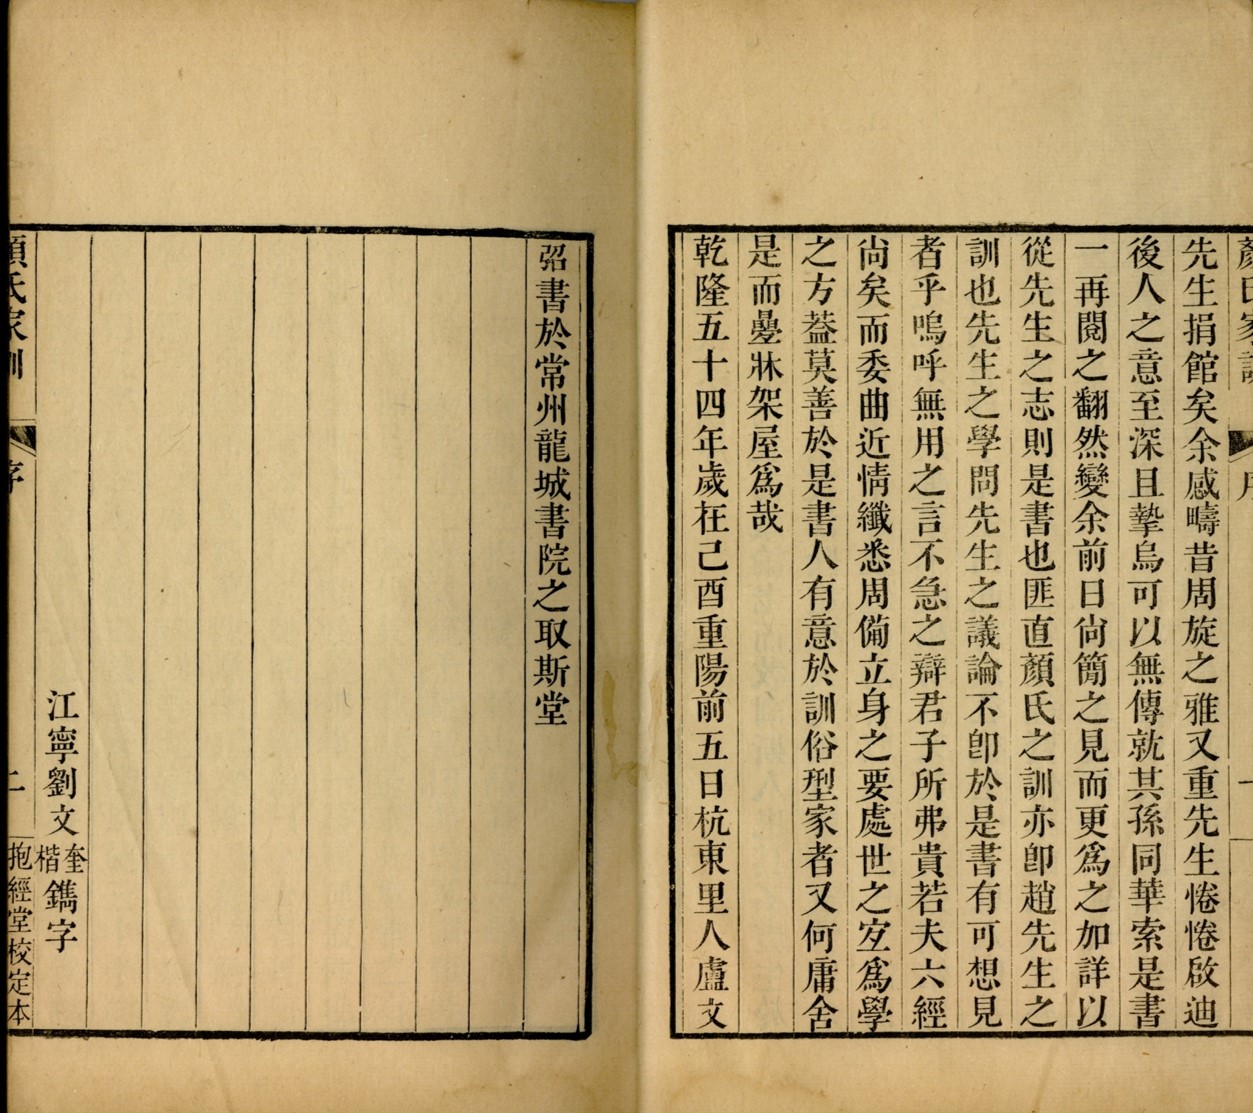 顏氏家訓
序
一
先生捐館矣余感疇昔周旋之雅又重先生惓惓啟迪
後人之意至深且摯烏可以無傳就其孫同華索是書
一再閱之翻然變余前日尙簡之見而更爲之加詳以
從先生之志則是書也匪直顏氏之訓亦卽趙先生之
訓也先生之學問先生之議論不卽於是書有可想見
者乎嗚呼無用之言不急之辯君子所弗貴若夫六經
尙矣而委曲近情纖悉周備立身之要處世之宐爲學
之方葢莫善於是書人有意於訓俗型家者又何庸舍
是而疊牀架屋爲哉
乾隆五十四年歲在己酉重陽前五日杭東里人盧文
弨書於常州龍城書院之取斯堂
江寧劉文奎楷鐫字
顏氏家訓
序
二
抱經堂校定本